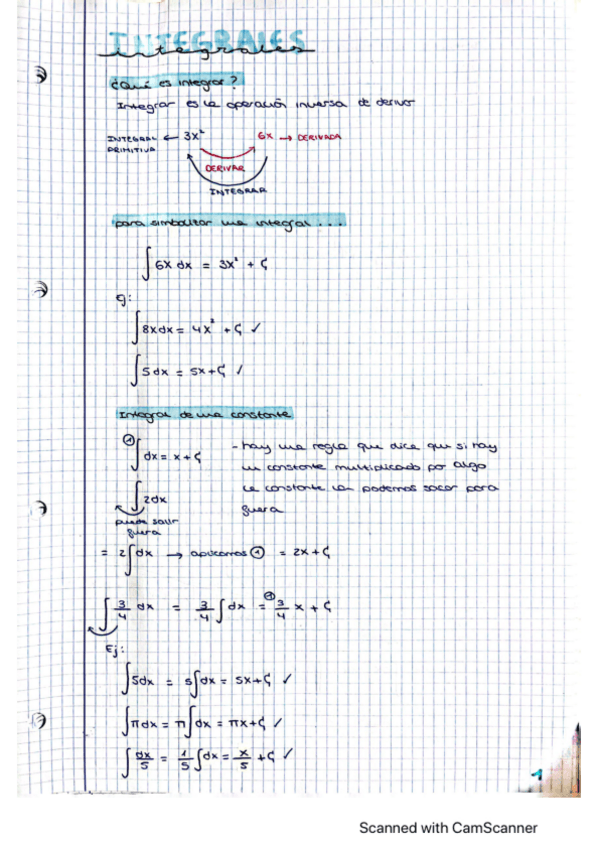 INTEGRALES
integrales
¿Qué es integrar?
Integrar es la operación inversa de derivar
INTEGRAL PRIMITIVA ← 3x² 6x → DERIVADA
DERIVAR
INTEGRAR
para simbolizar una integral...
∫6x dx = 3x² + C
Ej:
∫8x dx = 4x² + C ✓
∫5 dx = 5x + C ✓
Integral de una constante
① ∫dx = x + C
- hay una regla que dice que si hay
un constante multiplicado por algo
la constante la podemos sacar para
fuera
∫2dx
puede salir
fuera
= 2∫dx → aplicamos ① = 2x + C
∫3/4 dx = 3/4 ∫dx =① 3/4 x + C
Ej:
∫5dx = 5∫dx = 5x + C ✓
∫πdx = π∫dx = πx + C ✓
∫dx/5 = 1/5 ∫dx = x/5 + C ✓
1
Scanned with CamScanner